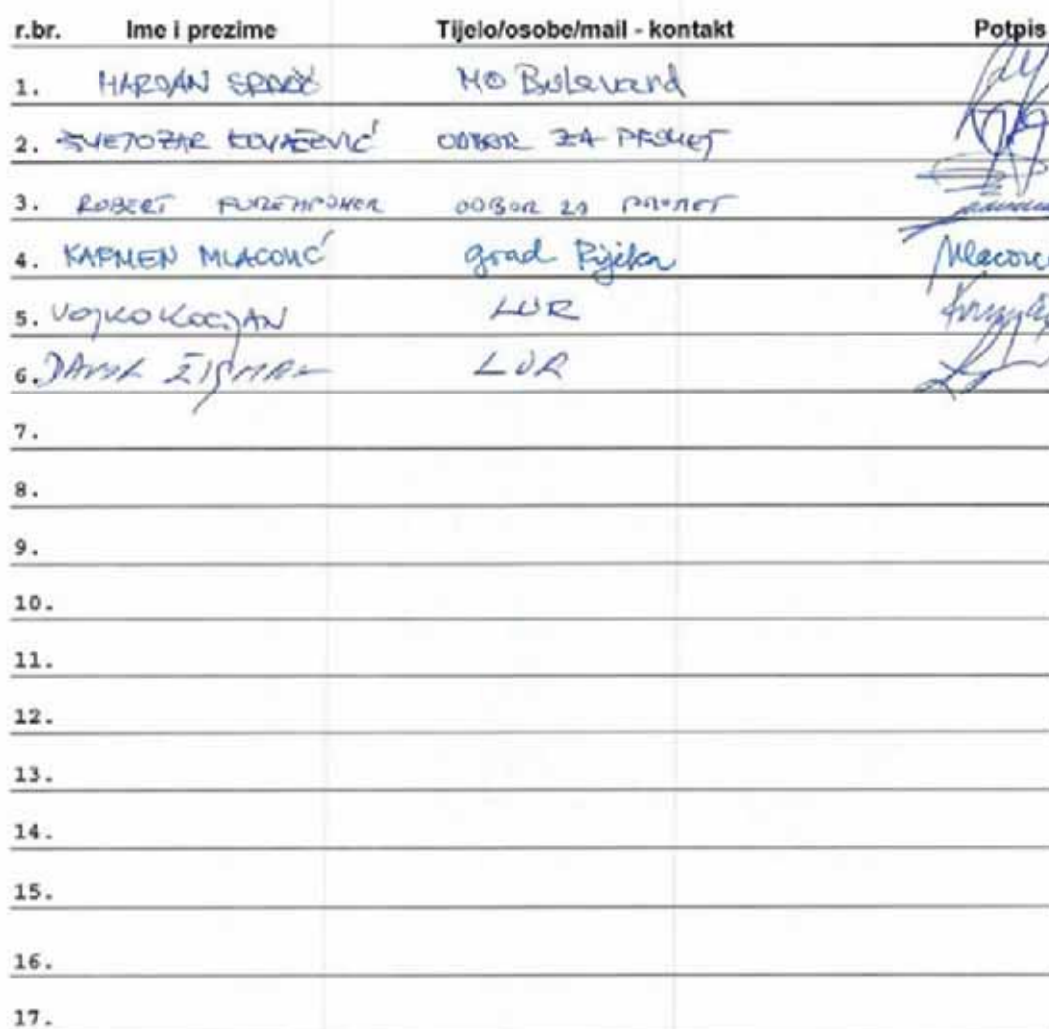 r.br. Ime i prezime Tijelo/osobe/mail - kontakt Potpis
1. MO Bulevard
2. SVETOZAR KOVAČEVIĆ ODBOR ZA PROMET
3. ROBERT ODBOR ZA PROMET
4. KARMEN MLACOVIĆ grad Rijeka
5. VOJKO KOCIJAN LUR
6. LUR
7.
8.
9.
10.
11.
12.
13.
14.
15.
16.
17.